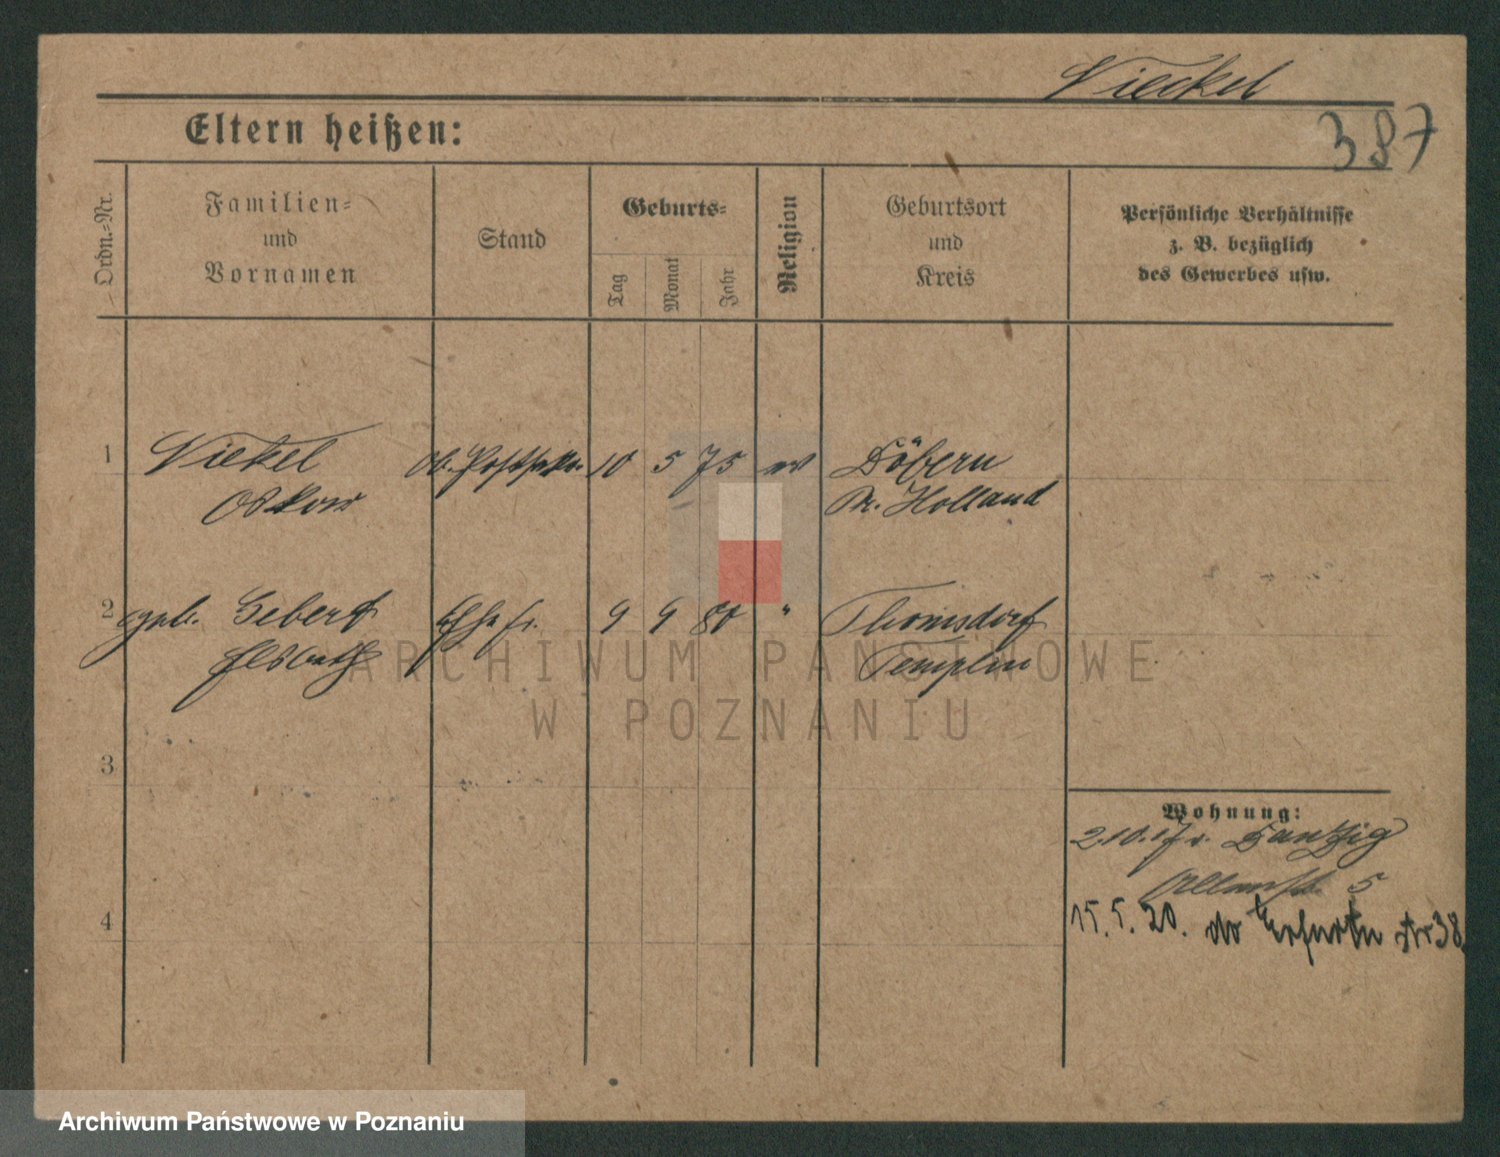 Vieckel
387
Eltern heißen:
Ordn.-Nr.
Familien-
und
Vornamen
Stand
Geburts-
Tag
Monat
Jahr
Religion
Geburtsort
und
Kreis
Persönliche Verhältnisse
z. B. bezüglich
des Gewerbes usw.
1 Viekel Ob. Postsekr. 10 5 75 ev Döbern
Oskar Pr. Holland
2 geb. Gebert Ehefr. 9 9 80 " Thomsdorf
Elsbeth Templin
3
4
Wohnung:
2.10.17 v. Danzig
5
15. 5. 20. do Erfurt Str 38
ARCHIWUM PAŃSTWOWE
W POZNANIU
Archiwum Państwowe w Poznaniu